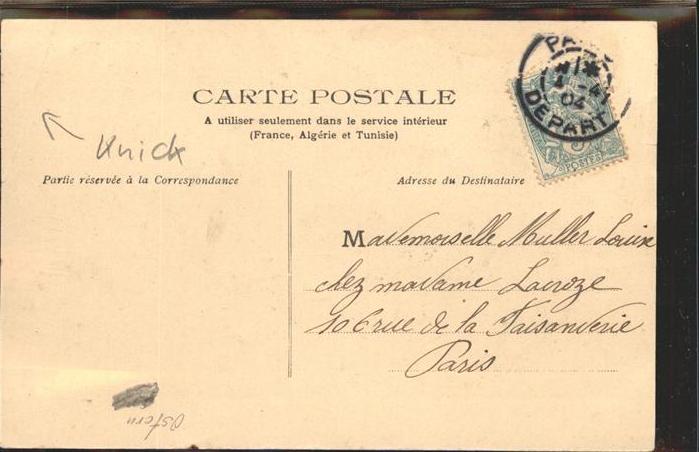 CARTE POSTALE
A utiliser seulement dans le service intérieur
(France, Algérie et Tunisie)
Knick
Partie réservée à la Correspondance
Adresse du Destinataire
DEPART
04
POSTES
Mademoiselle Muller Louise
chez madame Lacroze
106 rue de la Faisanderie
Paris
Ostern